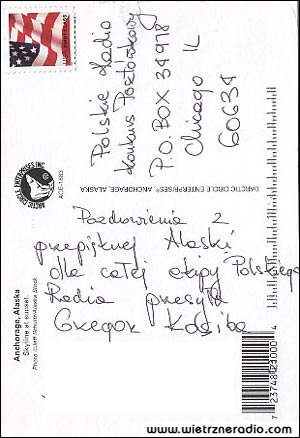 Polskie Radio
Konkurs Pocztówkowy
P.O. BOX 34978
Chicago IL
60634
Pozdrowienia z
przepięknej Alaski
dla całej ekipy Polskiego
Radia przesyła
Gregor Kosiba
ARCTIC CIRCLE ENTERPRISES INC.
ACE-1683
©ARCTIC CIRCLE ENTERPRISES®, ANCHORAGE, ALASKA
Anchorage, Alaska
Skyline at sunset.
Photo ©Jeff Schultz/Alaska Stock
7 23748 21000 4
www.wietrzneradio.com